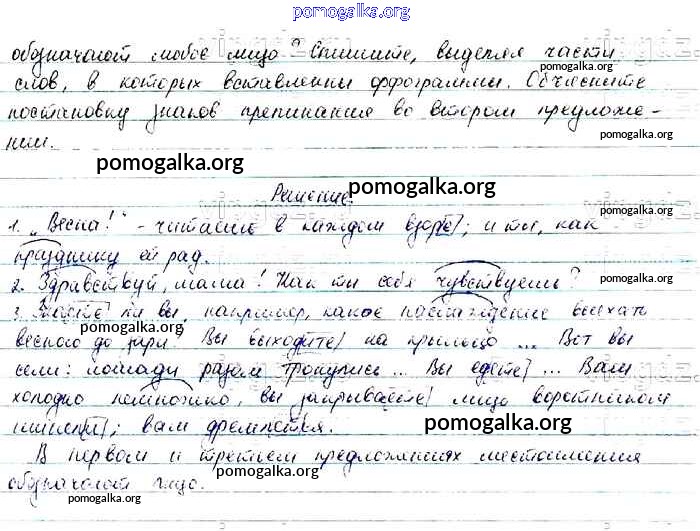 pomogalka.org
обозначают любое лицо? Спишите, выделяя части
слов, в которых вставлены орфограммы. Объясните
pomogalka.org
постановку знаков препинания во втором предложе-
pomogalka.org
нии.
pomogalka.org
Решение.
pomogalka.org
1. „Весна!" - читаешь в каждом взоре; и ты, как
pomogalka.org
празднику ей рад.
2. Здравствуй, мама! Как ты себя чувствуешь?
pomogalka.org
3. Знаете ли вы, например, какое наслаждение выехать
pomogalka.org
весною до зари? Вы выходите на крыльцо ... Вот вы
сели: лошади разом тронулись ... Вы едете ... Вам
pomogalka.org
холодно немножко, вы закрываете лицо воротником
шинели; вам дремлется.
pomogalka.org
В первом и третьем предложениях местоимения
pomogalka.org
обозначают лицо.
pomogalka.org